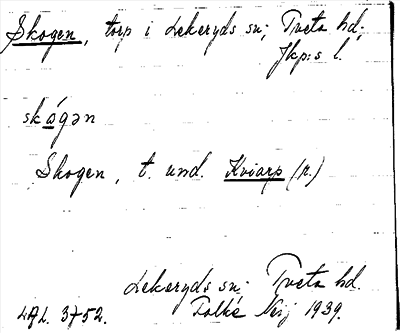 Skogen, torp i Lekeryds sn; Tveta hd;
Jkp:s l.
skǻgən
Skogen, t. und. Kviarp (n.)
Lekeryds sn; Tveta hd.
LAL. 3752. Folke Neij 1939.